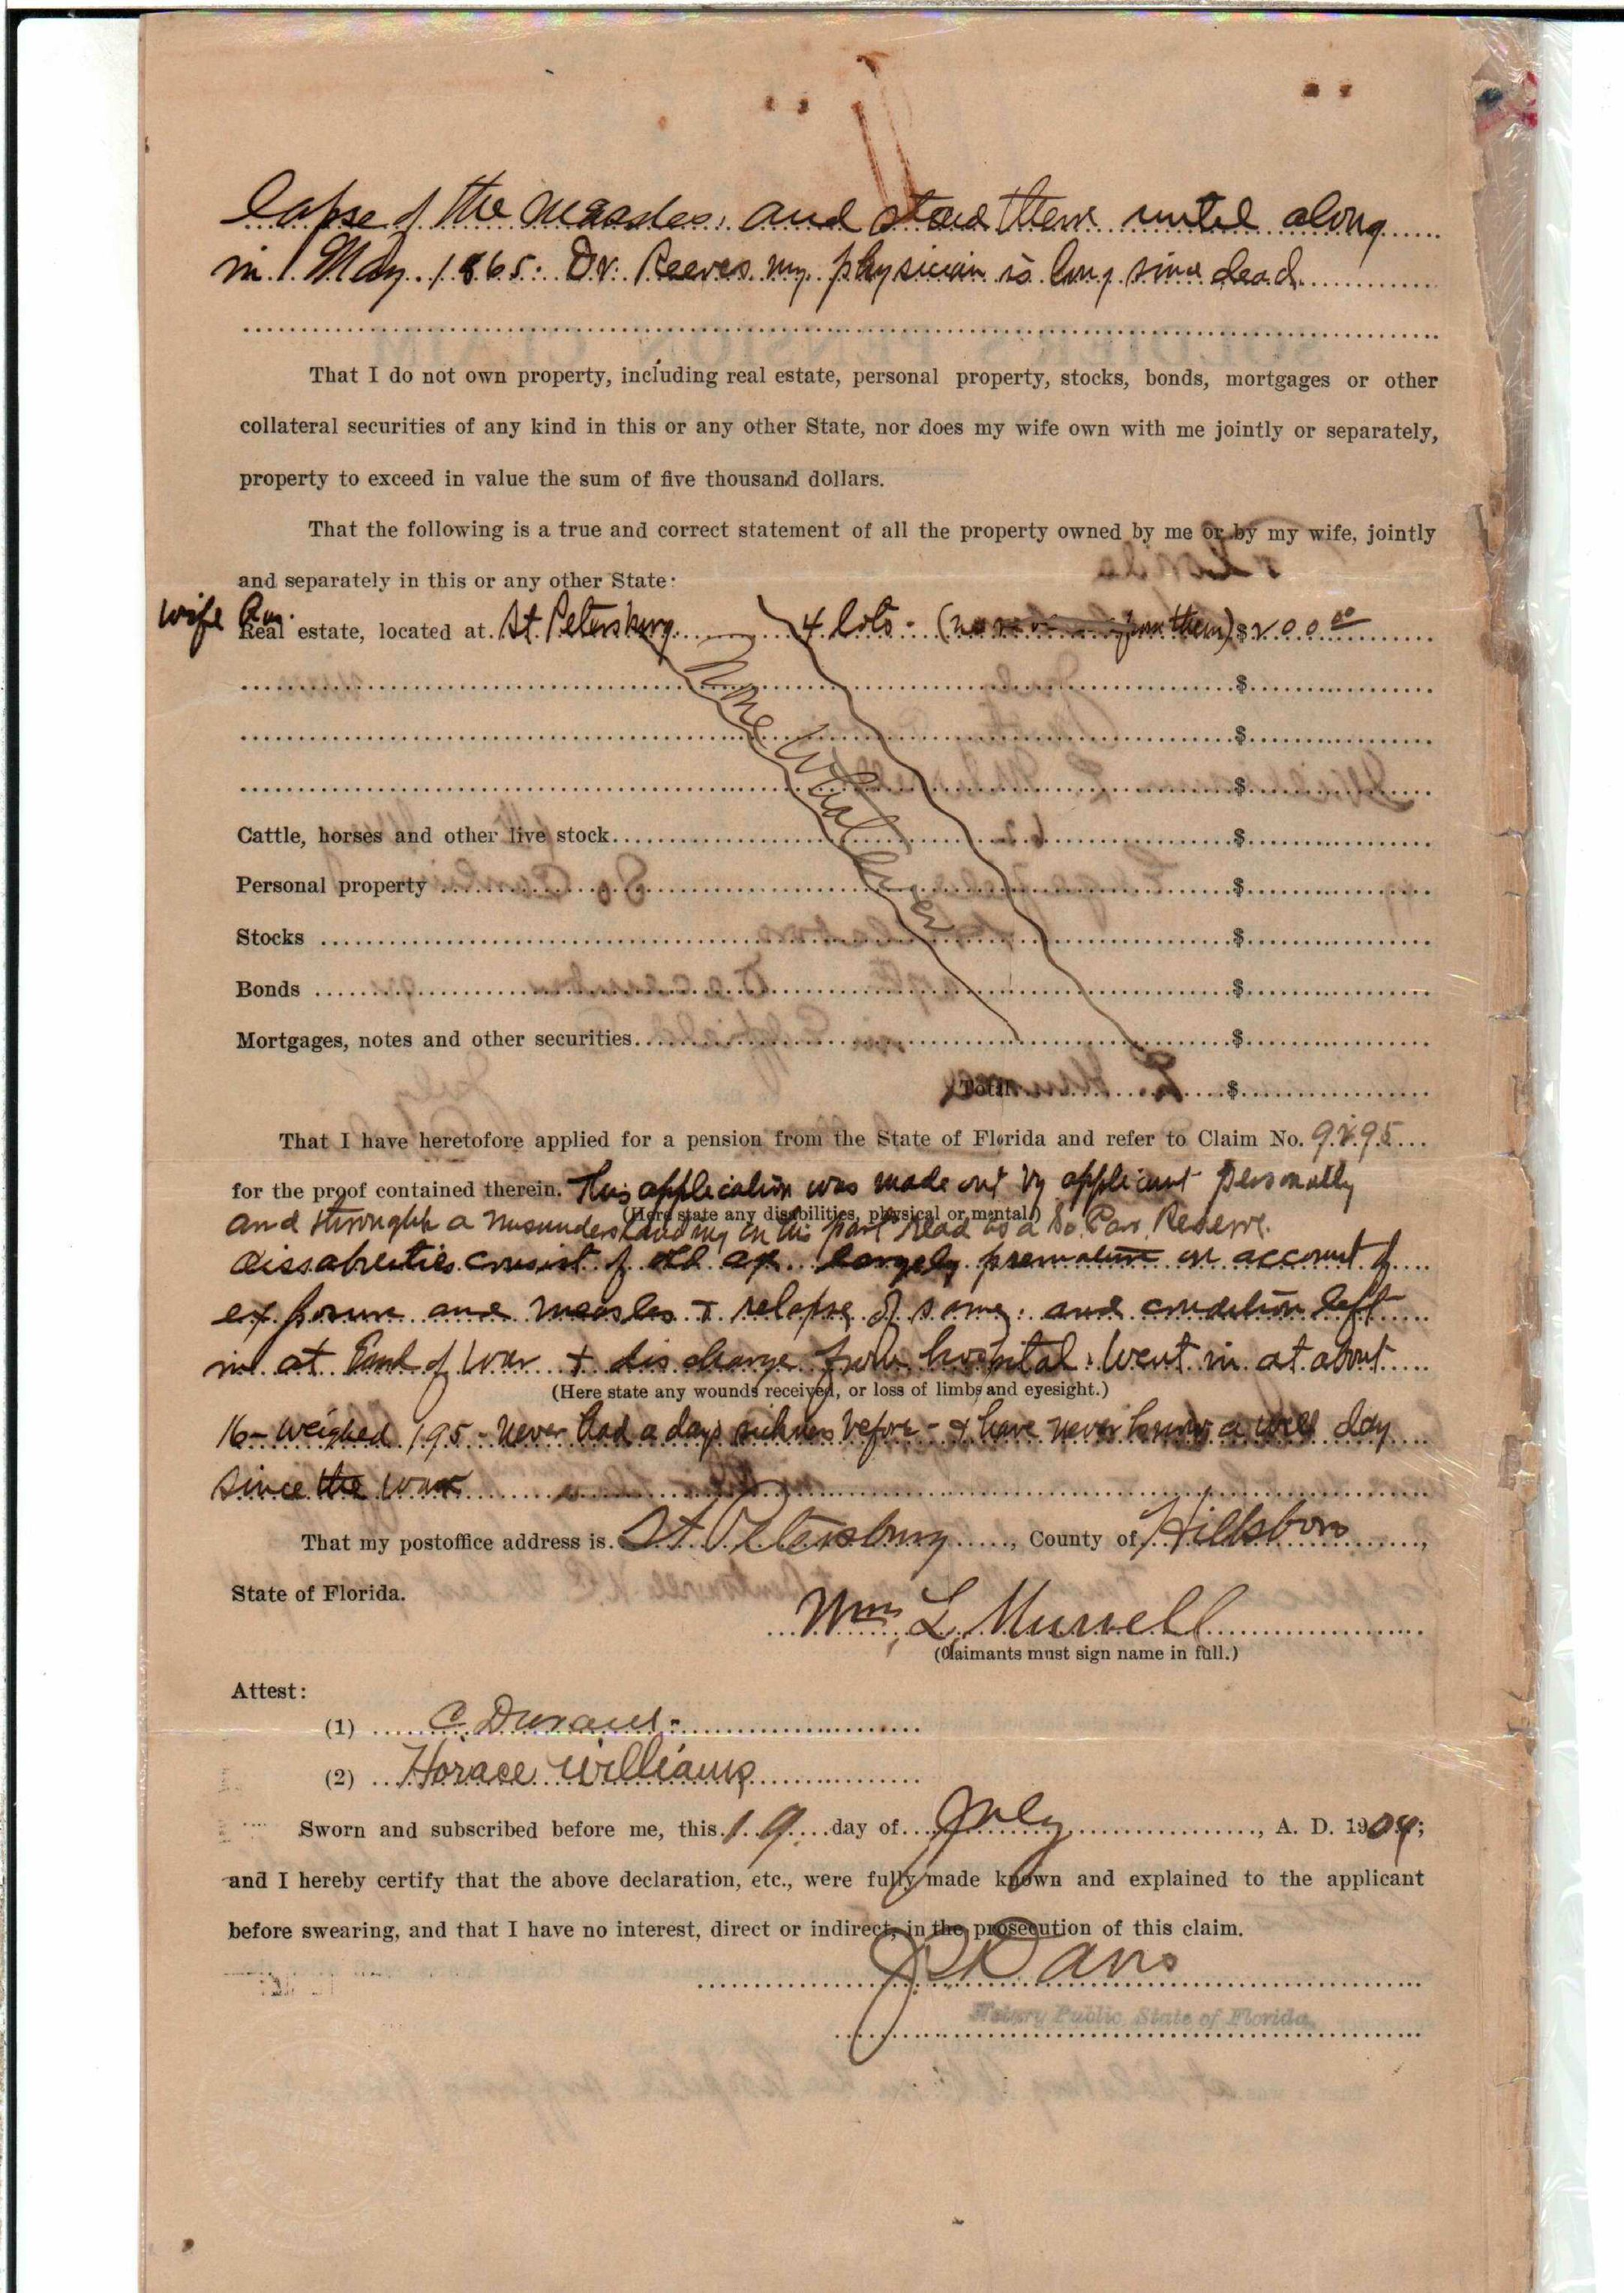 lapse of the measles, and staid there until along
in May 1865. Dr. Reeves my physician is long since dead.
That I do not own property, including real estate, personal property, stocks, bonds, mortgages or other
collateral securities of any kind in this or any other State, nor does my wife own with me jointly or separately,
property to exceed in value the sum of five thousand dollars.
That the following is a true and correct statement of all the property owned by me or by my wife, jointly
and separately in this or any other State:
wife
Real estate, located at St. Petersburg 4 lots - (no them) $200.00
$
$
$
None Whatever
Cattle, horses and other live stock $
Personal property $
Stocks $
Bonds $
Mortgages, notes and other securities $
Total $
That I have heretofore applied for a pension from the State of Florida and refer to Claim No. 9295
for the proof contained therein. This application was made out by applicant personally
(Here state any disabilities, physical or mental.)
and throughh a misunderstanding on his part read as a So. Car. Reserve.
dissabileties consist of old age largely premature on account of
exposure and measles + relapse of same. and condition left
in at End of War + discharge from hospital. Went in at about
(Here state any wounds received, or loss of limbs and eyesight.)
16 - weighed 195 - never had a days sickness before - & have never known a well day
since the war
That my postoffice address is St Petersburg, County of Hillsboro,
State of Florida.
Wm. L. Murrell
(Claimants must sign name in full.)
Attest:
(1) C.
(2) Horace Williams
Sworn and subscribed before me, this 19 day of July, A. D. 1909;
and I hereby certify that the above declaration, etc., were fully made known and explained to the applicant
before swearing, and that I have no interest, direct or indirect, in the prosecution of this claim.
Davis
Notary Public State of Florida